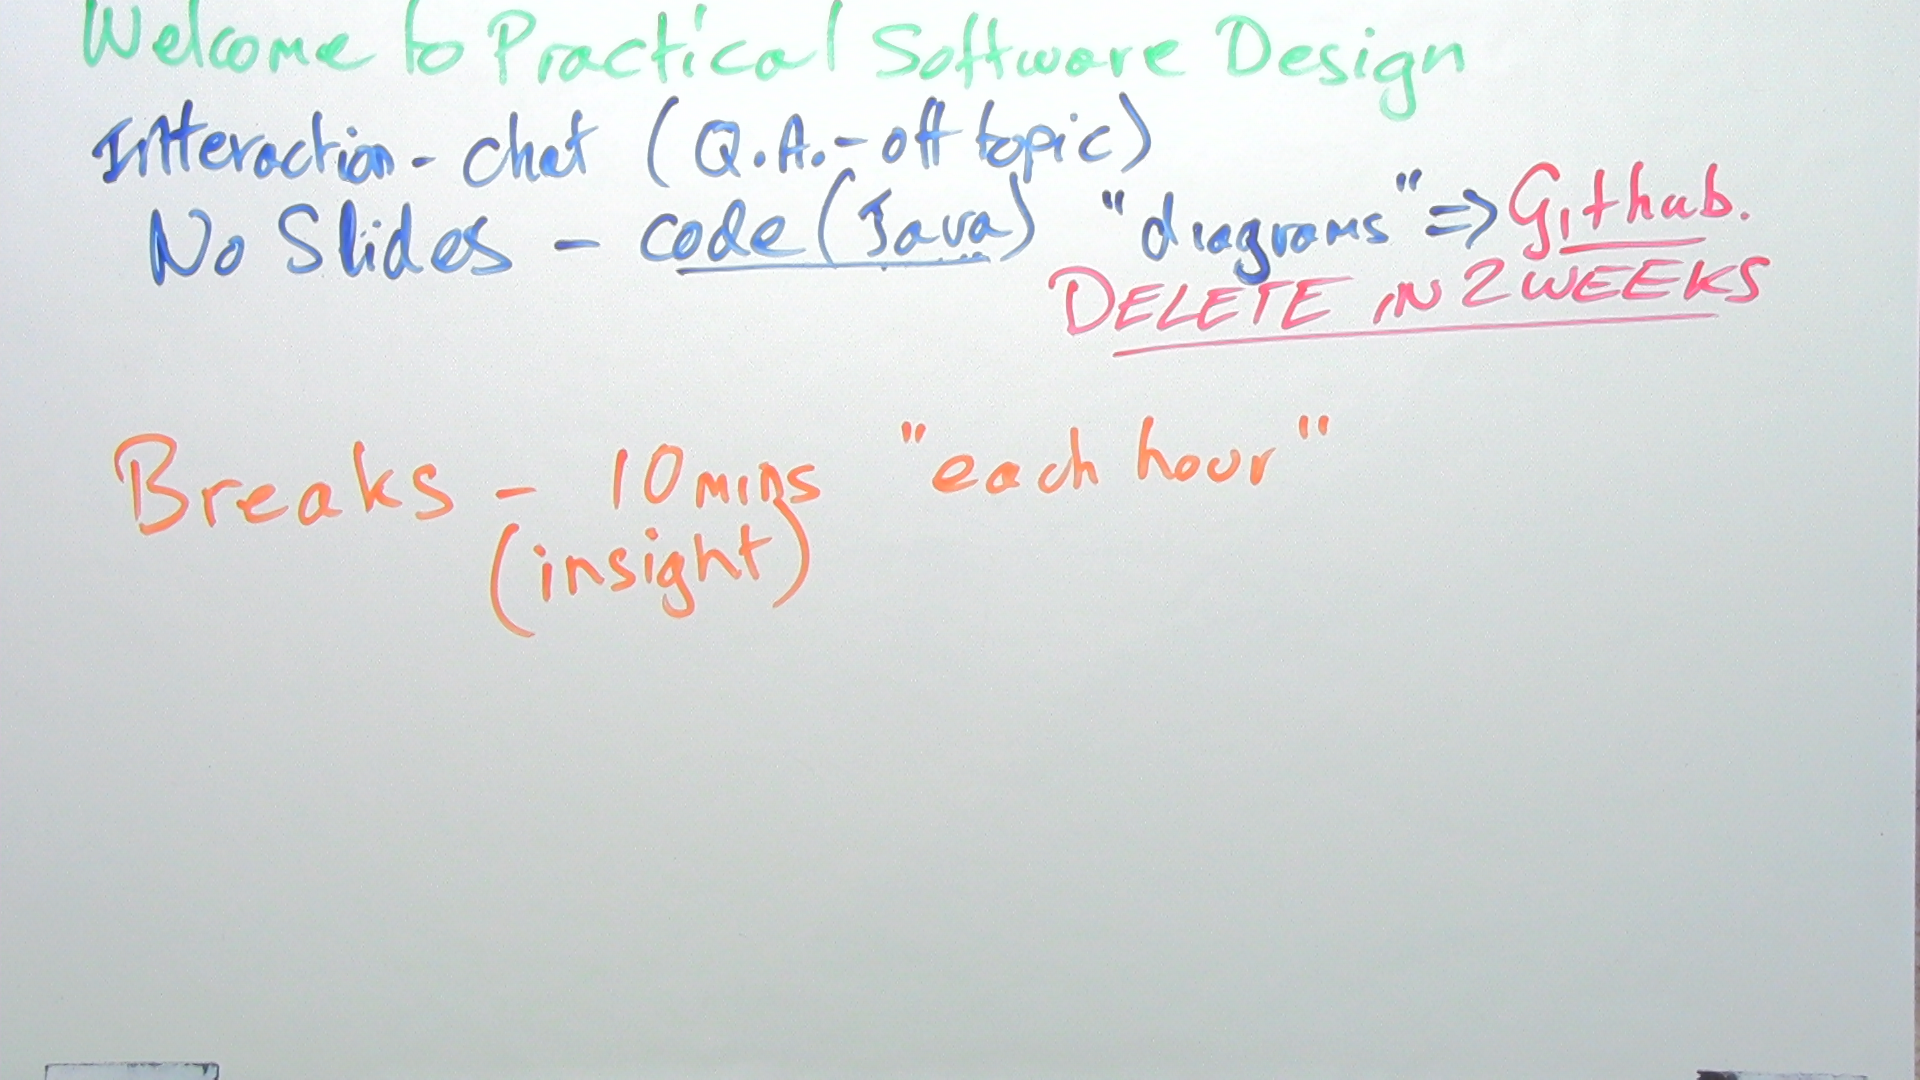 Welcome to Practical Software Design
Interaction - chat (Q.A. - off topic)
No Slides - code (Java) "diagrams" => Github.
DELETE IN 2 WEEKS
Breaks - 10 mins "each hour"
(insight)